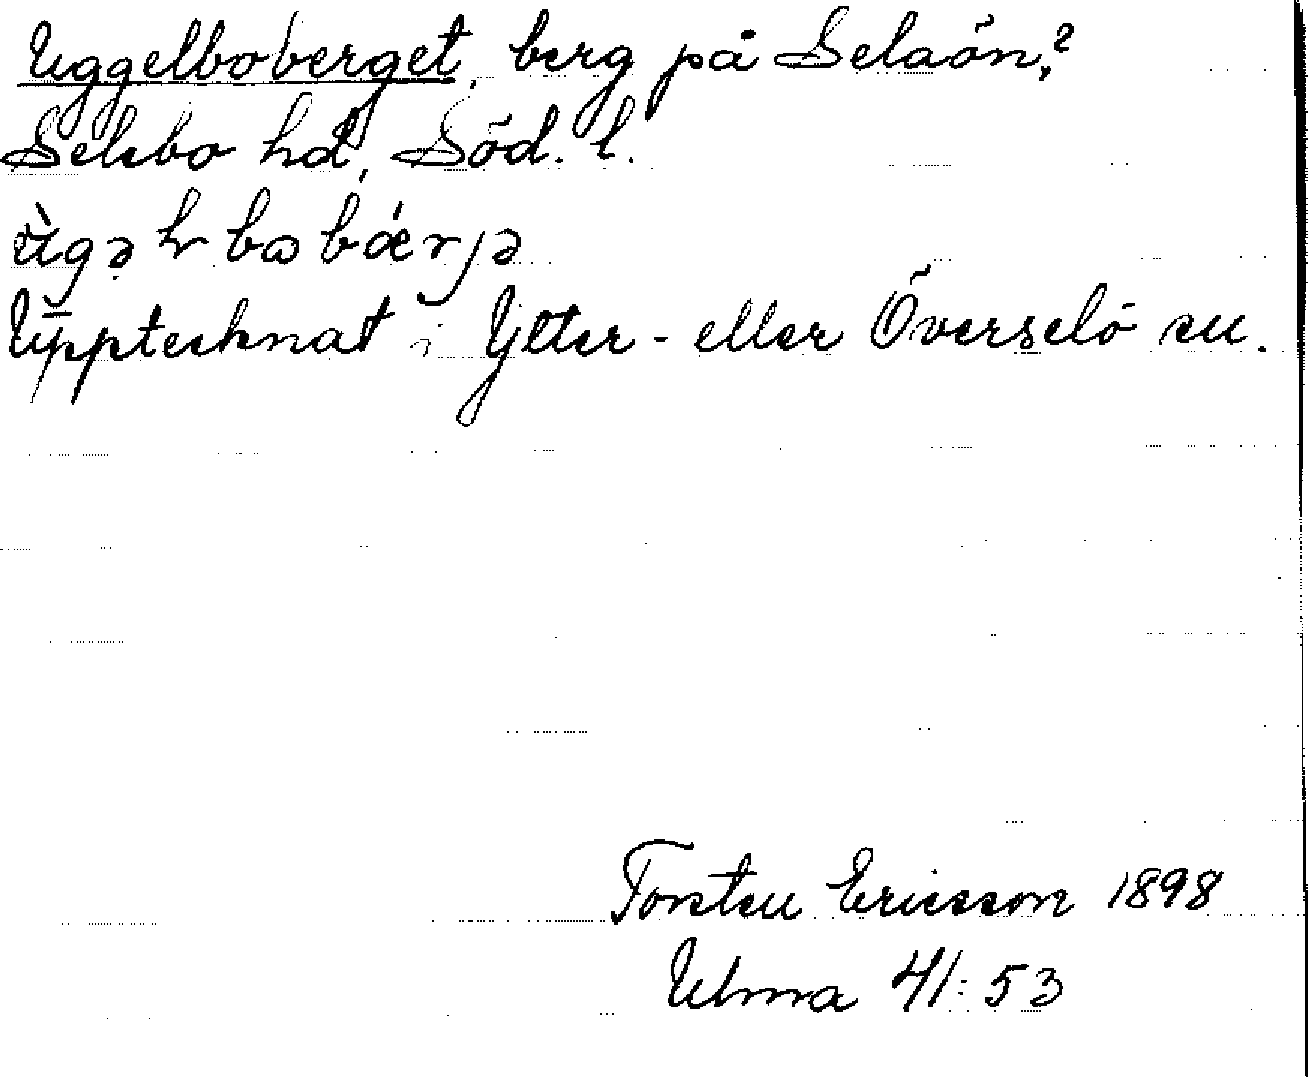 Uggelboberget, berg på Selaön,?
Selebo hd, Söd. l.
ùgəlrbωbǽrjə
Upptecknat i Ytter- eller Överselö sn.
Torsten Ericsson 1898
Ulma 41:53